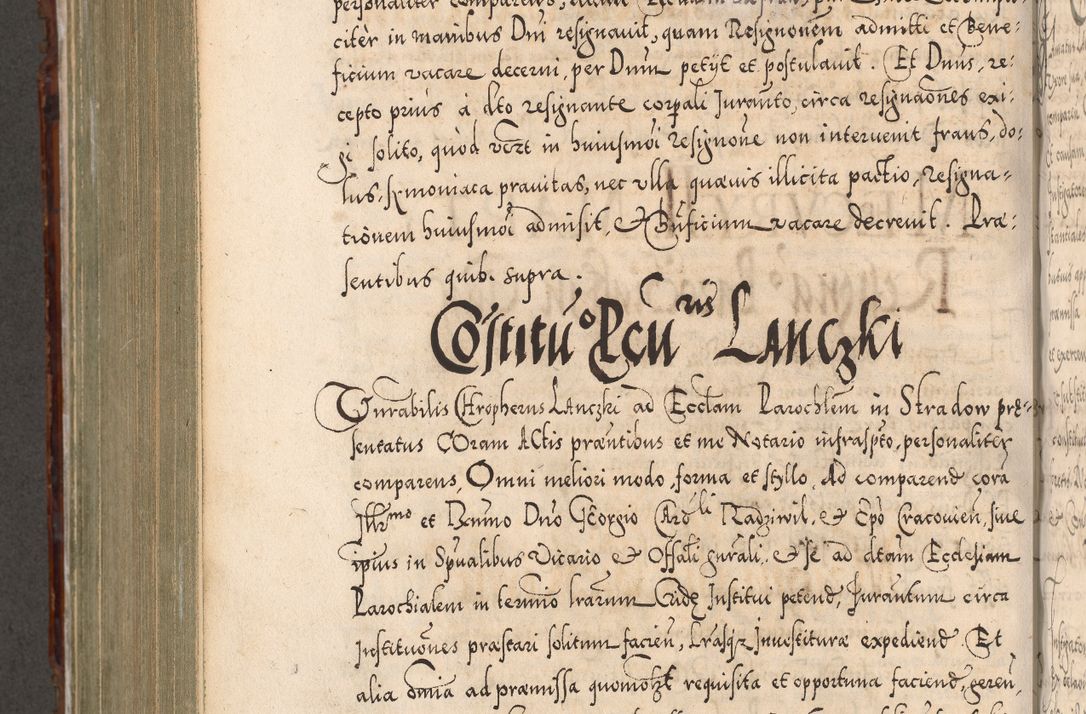 citèr in manibus Dni resignavit, quam Resignonem admitti et Bene:
ficium vacare decerni, per Dnum petijt et postulavit. Et Dnus, re:
cepto priùs à dto resignante corpali Juranto, circa resignaones exi:
gi solito, quòd vczt in huiusmoi resignone non intervenit fraus, do:
lus, symoniaca pravitas, nec ulla quævis illicita pactio, resigna=
tionem huiusmoi admisit, et Bnficium vacare decrevit. Præ:
sentibus quib. supra.
Constitu° Pcu Cris Lanczki
Vnrabilis Chropherus Lanczki ad Ecclam Parochlem in Stradow prę=
sentatus Coram Actis præntibus et me Notario infraspto, personalitèr
comparens, Omni meliori modo, forma et styllo. Ad comparend corã
Illrmo et Rcnmo Dno Georgio Cardli Radziwil, et Epo Cracovien, sive
ipius in Spualibus Vicario et Offali gnrali, et se ad dtam Ecclesiam
Parochialem in termio lrarum Cridę Institui petend, Jurantum circa
Institutiones præstari solitum facien, Lrasqz Investituræ expediend Et
alia omia ad præmissa quomolzt requisita et opportuna faciend, geren,